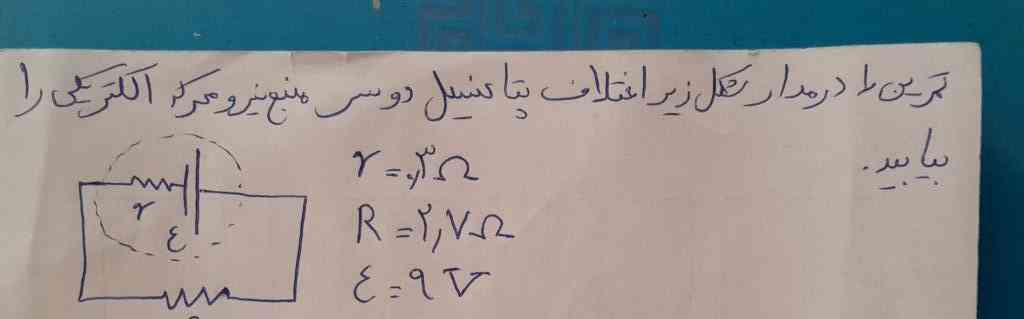 تمرین ۱: در مدار شکل زیر اختلاف پتانسیل دو سر منبع نیرو محرکه الکتریکی را
بیابید.
r = ۰٫۳Ω
R = ۲٫۷Ω
ε = ۹V
r
ε